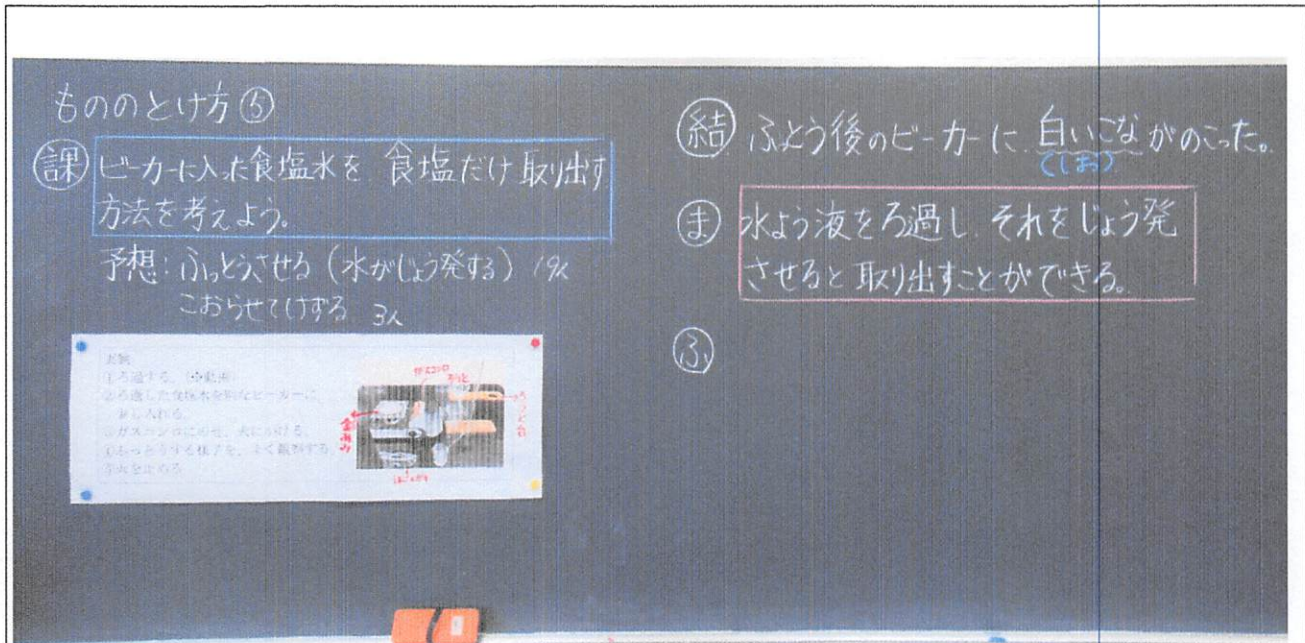 もののとけ方⑤
課 ビーカーに入った食塩水を、食塩だけ取り出す
方法を考えよう。
予想：ふっとうさせる（水がじょう発する）19人
こおらせてけずる 3人
①ろ過する。
②ろ過した食塩水を別なビーカーに
少し入れる。
③ガスコンロにのせ、火にかける。
④ふっとうする様子を、よく観察する。
⑤火を止める
ろうと
ろうと台
金あみ
結 ふっとう後のビーカーに、白いこながのこった。
（しお）
ま 水よう液をろ過し、それをじょう発
させると取り出すことができる。
ふ